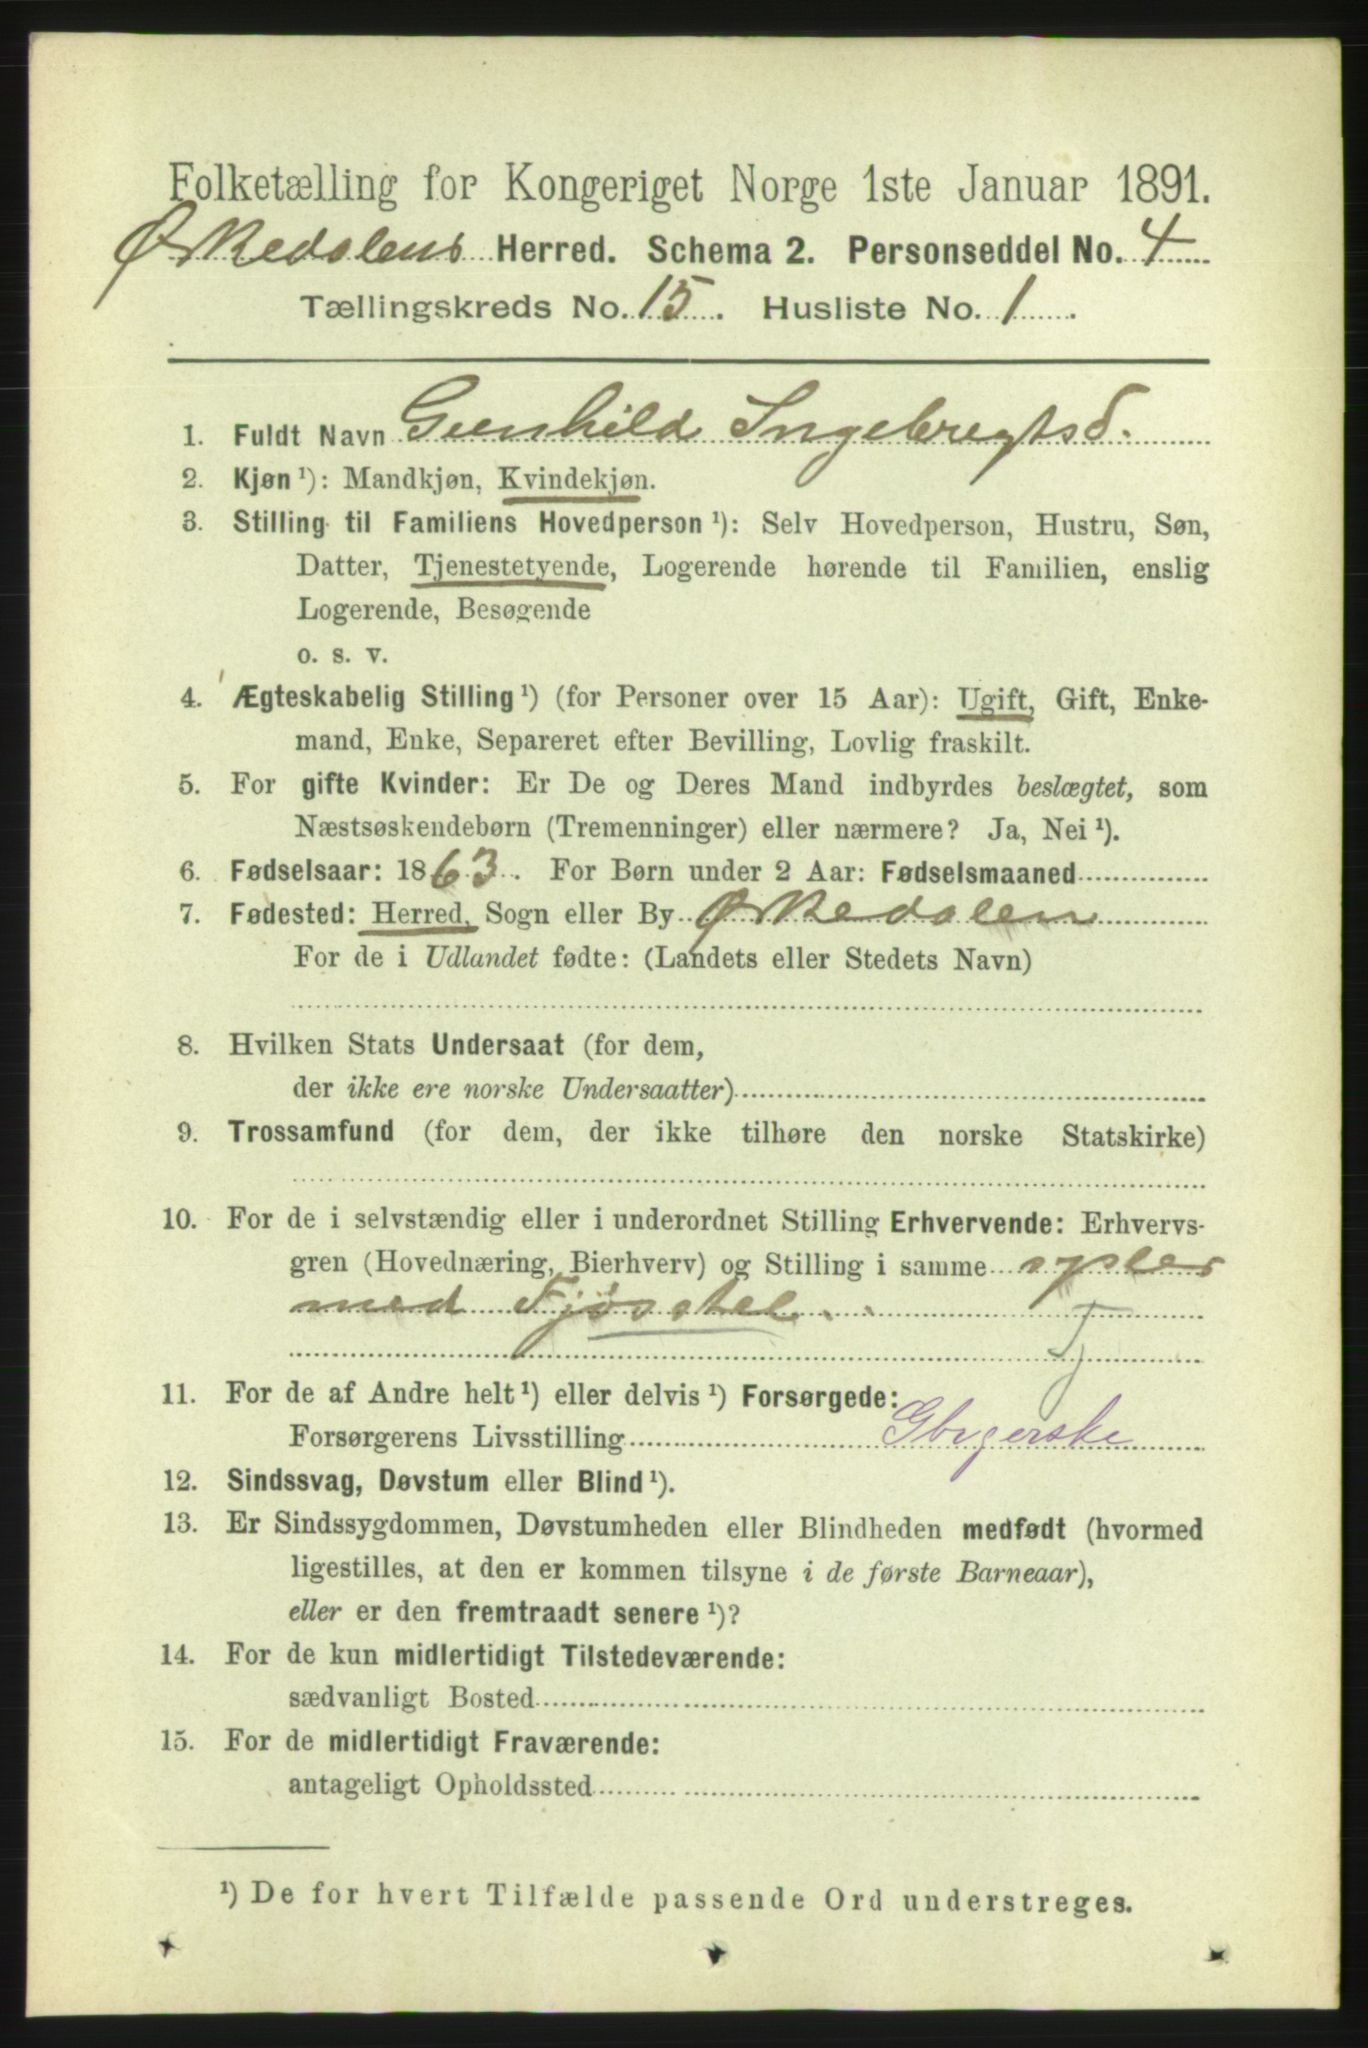 Folketælling for Kongeriget Norge 1ste Januar 1891.
Ørkedalens Herred. Schema 2. Personseddel No. 4
Tællingskreds No. 15. Husliste No. 1.
1. Fuldt Navn Gunhild Ingebregtsd.
2. Kjøn ¹): Mandkjøn, Kvindekjøn.
3. Stilling til Familiens Hovedperson ¹): Selv Hovedperson, Hustru, Søn,
Datter, Tjenestetyende, Logerende hørende til Familien, enslig
Logerende, Besøgende
o. s. v.
4. Ægteskabelig Stilling ¹) (for Personer over 15 Aar): Ugift, Gift, Enke-
mand, Enke, Separeret efter Bevilling, Lovlig fraskilt.
5. For gifte Kvinder: Er De og Deres Mand indbyrdes beslægtet, som
Næstsøskendebørn (Tremenninger) eller nærmere? Ja, Nei ¹).
6. Fødselsaar: 1863. For Børn under 2 Aar: Fødselsmaaned
7. Fødested: Herred, Sogn eller By Ørkedalen
For de i Udlandet fødte: (Landets eller Stedets Navn)
8. Hvilken Stats Undersaat (for dem,
der ikke ere norske Undersaatter)
9. Trossamfund (for dem, der ikke tilhøre den norske Statskirke)
10. For de i selvstændig eller i underordnet Stilling Erhvervende: Erhvervs-
gren (Hovednæring, Bierhverv) og Stilling i samme sysler
med Fjøsstel.
T
11. For de af Andre helt ¹) eller delvis ¹) Forsørgede:
Forsørgerens Livsstilling Gbrgerske
12. Sindssvag, Døvstum eller Blind ¹).
13. Er Sindssygdommen, Døvstumheden eller Blindheden medfødt (hvormed
ligestilles, at den er kommen tilsyne i de første Barneaar),
eller er den fremtraadt senere ¹)?
14. For de kun midlertidigt Tilstedeværende:
sædvanligt Bosted
15. For de midlertidigt Fraværende:
antageligt Opholdssted
¹) De for hvert Tilfælde passende Ord understreges.